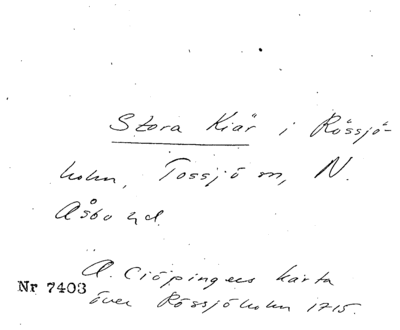 Stora Kiär i Rössjö-
holm, Tossjö sn, N.
Åsbo hd.
A. Ciöpingers karta
Nr 7403
över Rössjöholm 1715.